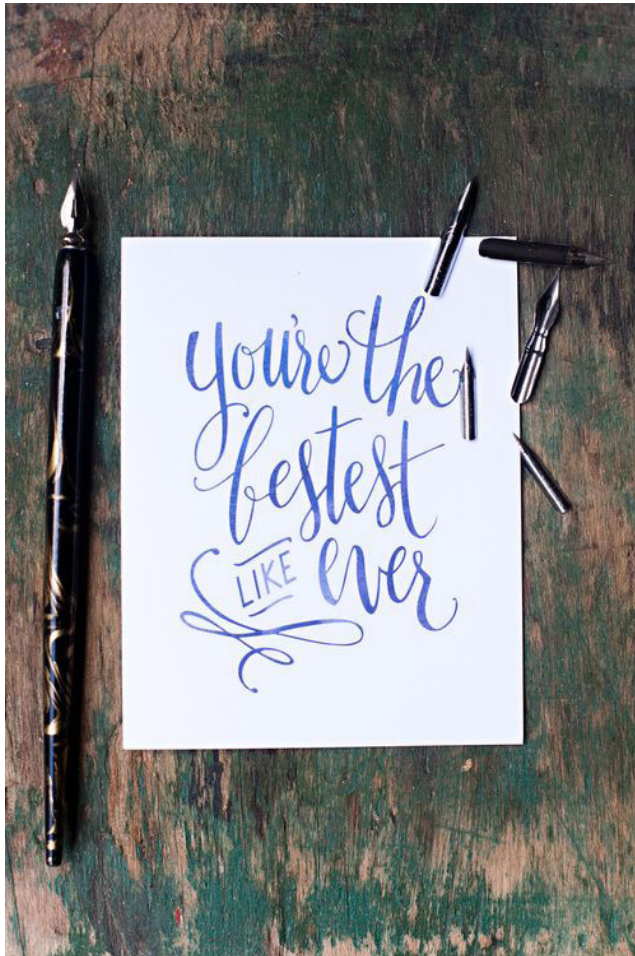 you're the
bestest
LIKE ever